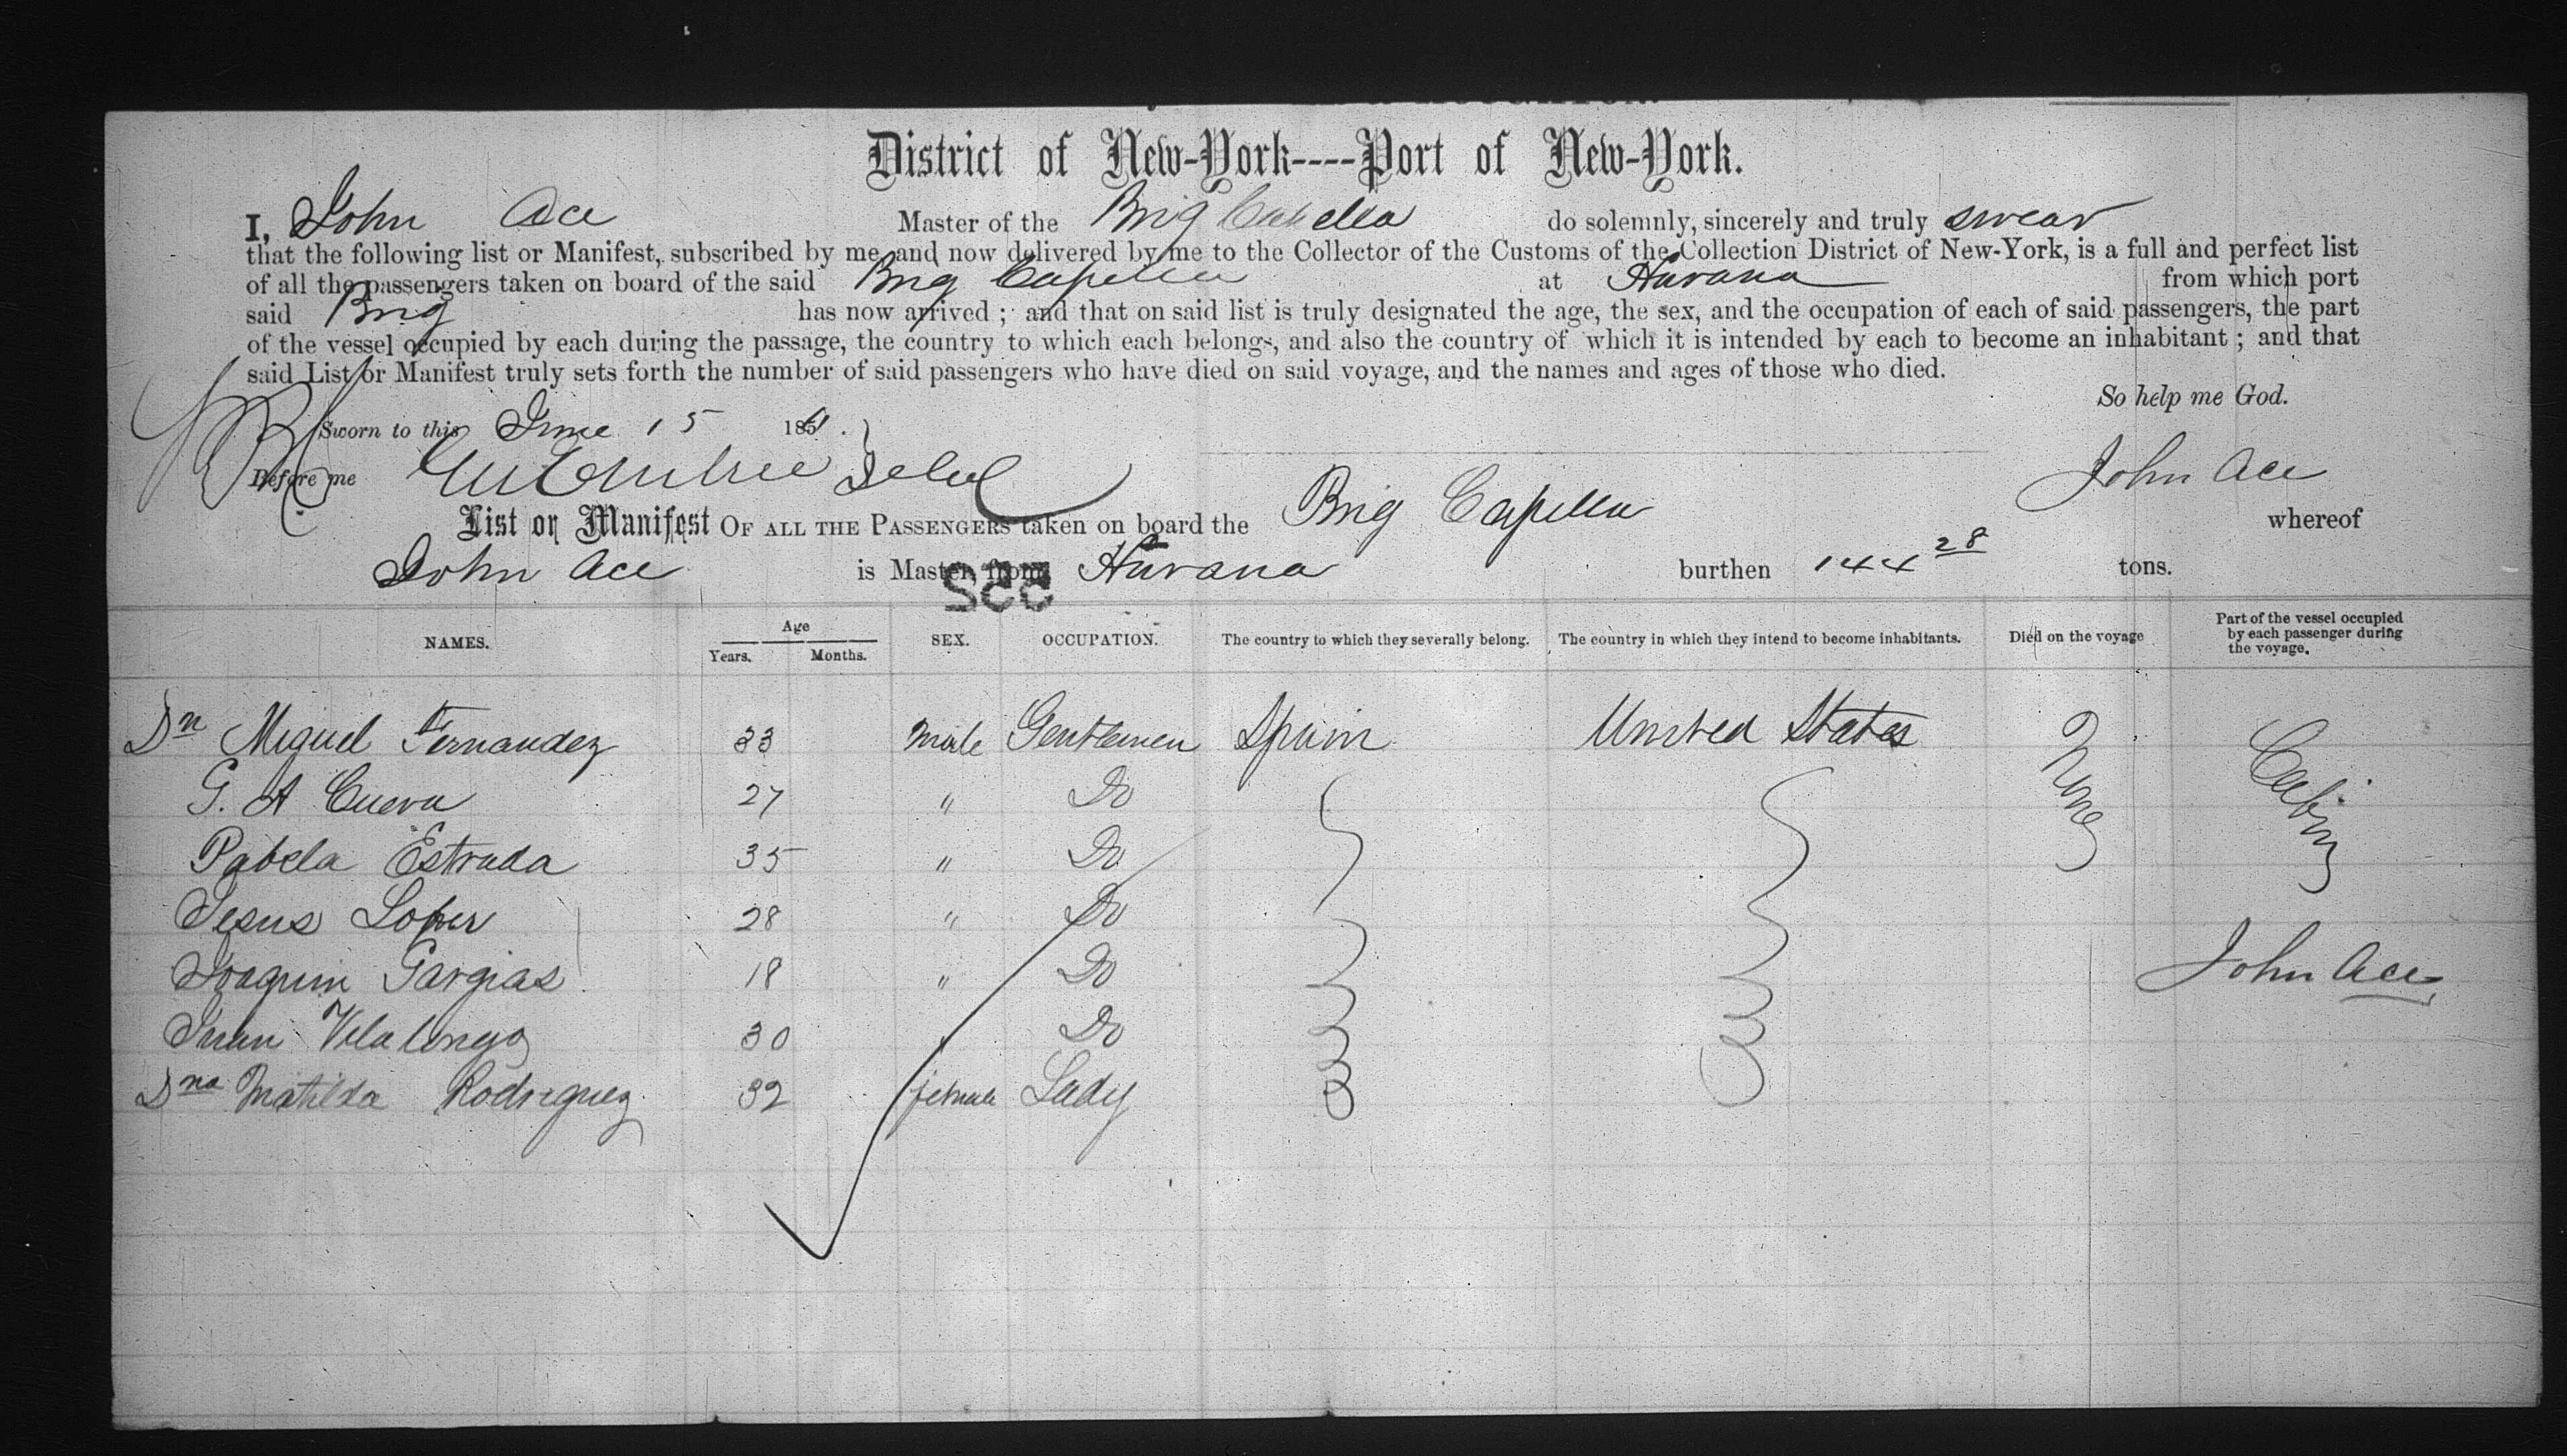 District of New-York----Port of New-York.
I, John Ace Master of the Brig Capella do solemnly, sincerely and truly swear
that the following list or Manifest, subscribed by me and now delivered by me to the Collector of the Customs of the Collection District of New-York, is a full and perfect list
of all the passengers taken on board of the said Brig Capella at Havana from which port
said Brig has now arrived; and that on said list is truly designated the age, the sex, and the occupation of each of said passengers, the part
of the vessel occupied by each during the passage, the country to which each belongs, and also the country of which it is intended by each to become an inhabitant; and that
said List or Manifest truly sets forth the number of said passengers who have died on said voyage, and the names and ages of those who died.
So help me God.
Sworn to this June 15 1861.
Before me John Ace
List or Manifest OF ALL THE PASSENGERS taken on board the Brig Capella whereof
John Ace is Master, from Havana burthen 144 28 tons.
SCC
NAMES. Age Years. Months. SEX. OCCUPATION. The country to which they severally belong. The country in which they intend to become inhabitants. Died on the voyage Part of the vessel occupied by each passenger during the voyage.
Dn Miguel Fernandez 33 male Gentlemen Spain United States None Cabin
G. A Cueva 27 " Do
Pabela Estrada 35 " Do
Jesus Loper 28 " Do
Joaquin Gargias 18 " Do John Ace
Juan Vilalonga 30 " Do
Dna Matilda Rodriguez 32 female Lady